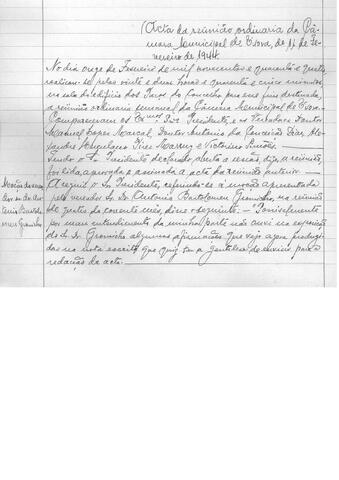 Acta da reunião ordinaria da Câ-
mara Municipal de Évora, de 11 de Fe-
vereiro de 1944
No dia onze de Fevereiro de mil novecentos e quarenta e quatro,
realizou-se pelas vinte e duas horas e quarenta e cinco minutos
na sala do edificio dos Paços do Concelho para esse fim destinada,
a reunião ordinaria semanal da Câmara Municipal de Évora.
Compareceram os Exmos Snr. Presidente, e os Vereadores Doutor
Manuel Lopes Marçal, Doutor Antonio da Conceição Dias, Ale-
xandre e Victorino Simões.
Tendo o Sr. Presidente declarado aberta a sessão, dija a reunião,
foi lida, aprovada e assinada a acta da reunião anterior.
A seguir o Sr. Presidente, referindo-se à moção apresentada
pelo vereador Sr. Dr. Antonio Bartolomeu Gromicho, na reunião
de quatro do corrente mês, disse o seguinte: - "Possivelmente
por mau entendimento da minha parte não ouvi na exposição
do Sr. Dr. Gromicho algumas afirmações que vejo agora produzi-
das na nota escrita que quiz ter a gentileza de enviar para a
redacção da acta.
Moção do verea-
dor Sr. Dr. An-
tonio Bartolo-
meu Gromicho